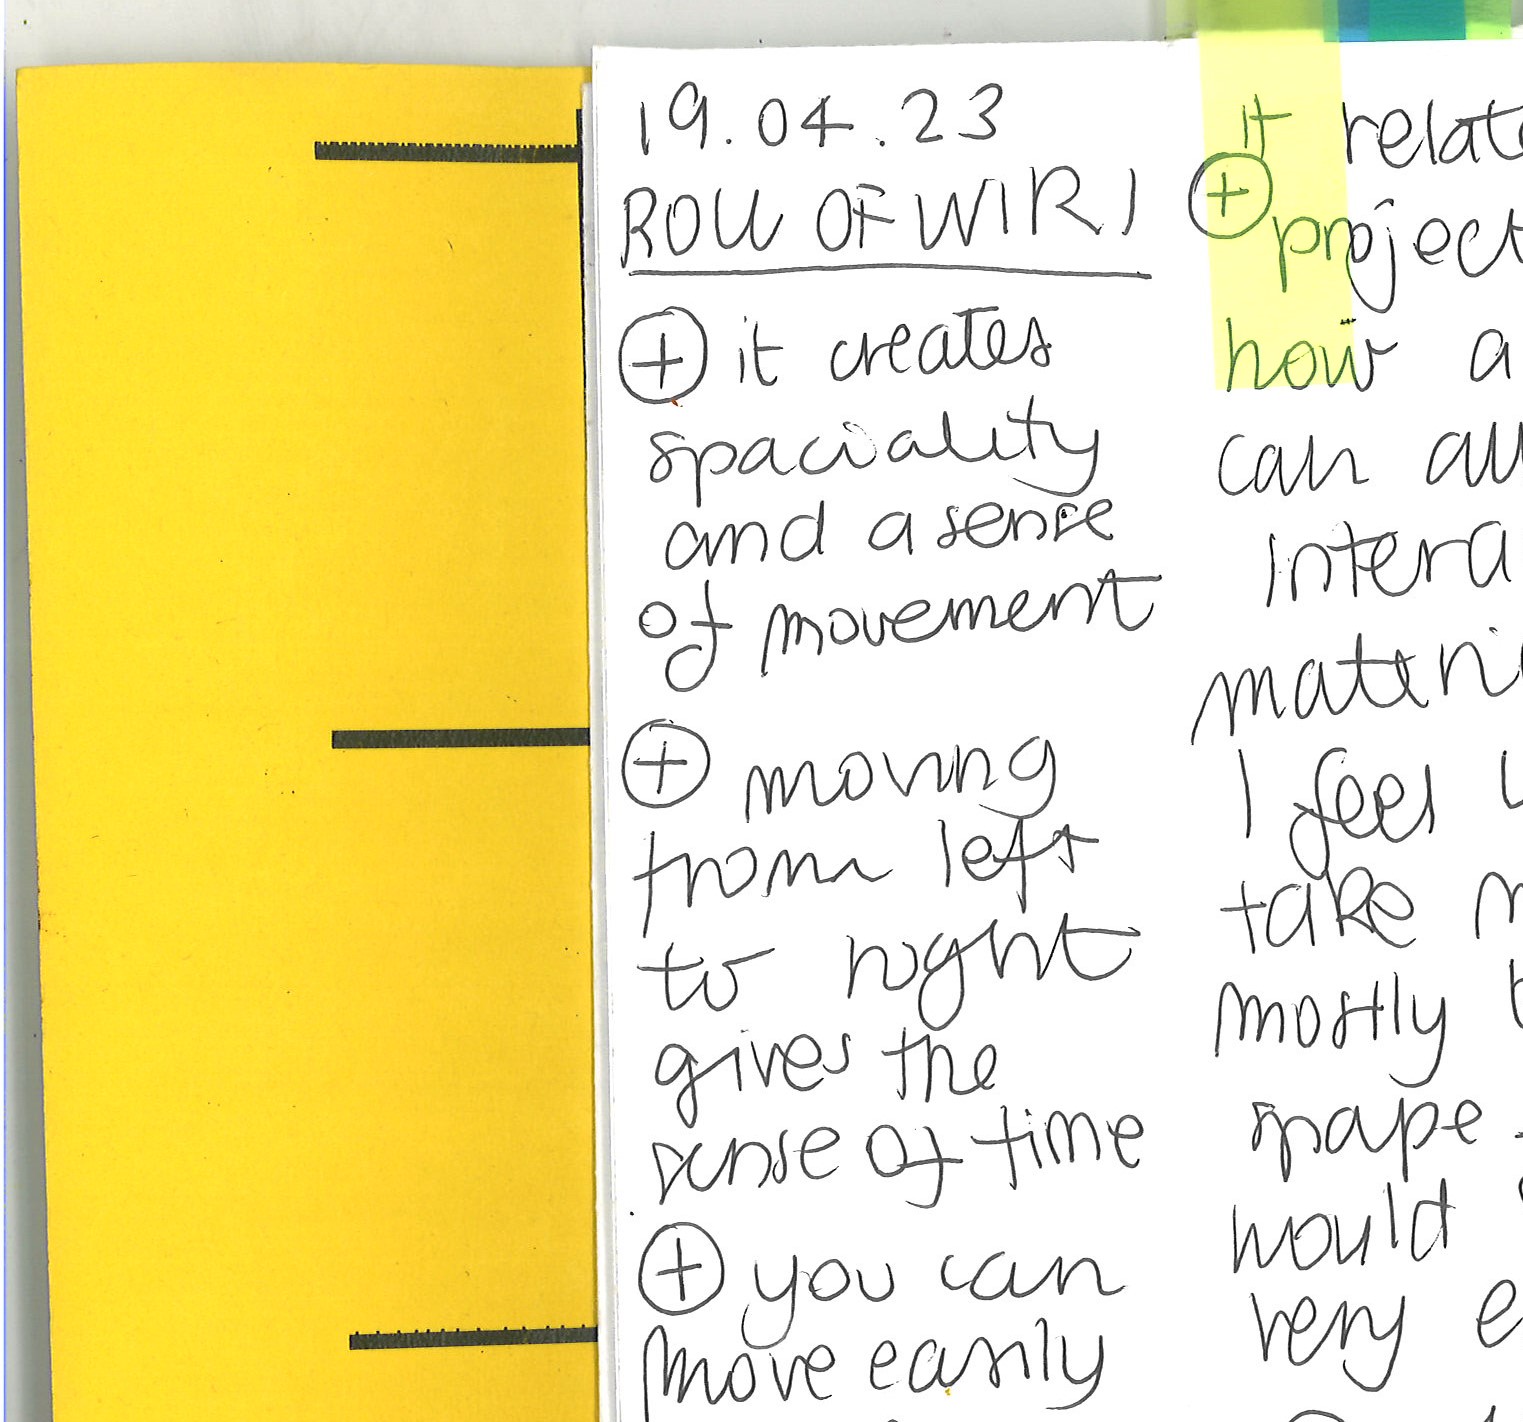 19.04.23
ROLL OF WIR I
⊕ it creates
spaciality
and a sense
of movement
⊕ moving
from left
to right
gives the
sense of time
⊕ you can
move easily
it relate
⊕ project
how a
can all
intera
materi
I feel
take m
mostly b
shape
would
very e